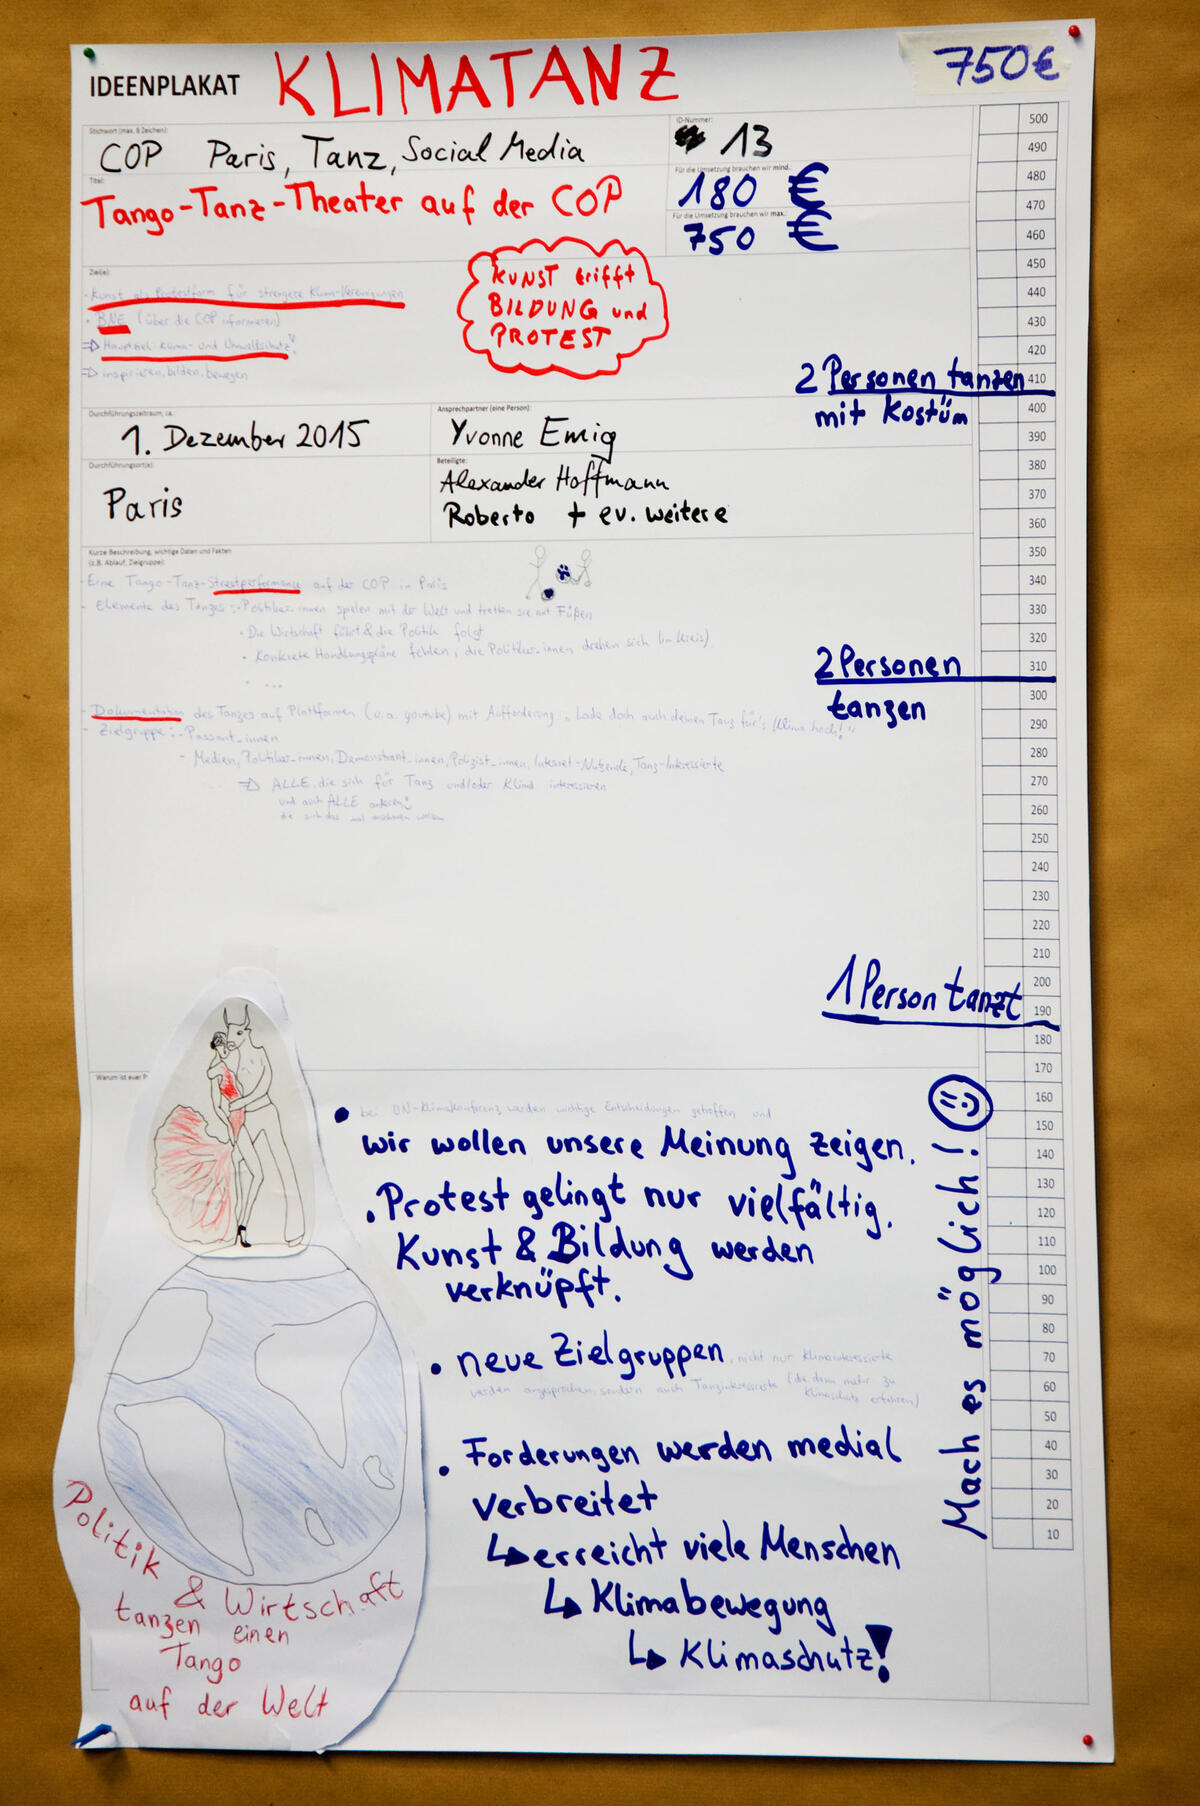 IDEENPLAKAT KLIMATANZ
750€
Stichwort (max. 8 Zeichen):
COP Paris, Tanz, Social Media
ID-Nummer:
13
Titel:
Tango-Tanz-Theater auf der COP
Für die Umsetzung brauchen wir mind.:
180 €
Für die Umsetzung brauchen wir max.:
750 €
Ziel(e):
- Kunst als Protestform für strengere Klima-Vereinigungen
• BNE (über die COP informieren)
⇒ Hauptziel Klima- und Umweltschutz!
⇒ inspirieren, bilden, bewegen
KUNST trifft
BILDUNG und
PROTEST
2 Personen tanzen
mit Kostüm
Durchführungszeitraum, ca.:
1. Dezember 2015
Ansprechpartner (eine Person):
Yvonne Emig
Durchführungsort(e):
Paris
Beteiligte:
Alexander Hoffmann
Roberto + ev. weitere
Kurze Beschreibung, wichtige Daten und Fakten
(z.B. Ablauf, Zielgruppe):
- Eine Tango-Tanz-Streetperformance auf der COP in Paris
- Elemente des Tanzes: - Politiker_innen spielen mit der Welt und tretten sie mit Füßen
• Die Wirtschaft führt & die Politik folgt
• Konkrete Handlungspläne fehlen, die Politiker_innen drehen sich (im Kreis)
• ...
2 Personen
tanzen
- Dokumentation des Tanzes auf Plattformen (u.a. youtube) mit Aufforderung „Lade doch auch deinen Tanz für's Klima hoch!"
- Zielgruppe: - Passant_innen
- Medien, Politiker_innen, Demonstrant_innen, Polizist_innen, Internet-Nutzende, Tanz-Interessierte
⇒ ALLE, die sich für Tanz und/oder Klima interessieren
und auch ALLE anderen
die sich das mal anschauen wollen
1 Person tanzt
Warum ist euer P
• bei UN-Klimakonferenz werden wichtige Entscheidungen getroffen und
wir wollen unsere Meinung zeigen.
• Protest gelingt nur vielfältig.
Kunst & Bildung werden
verknüpft.
• neue Zielgruppen, nicht nur Klimainteressierte
werden angesprochen, sondern auch Tanzinteressierte (die dann mehr zu
Klimaschutz erfahren)
• Forderungen werden medial
verbreitet
↳ erreicht viele Menschen
↳ Klimabewegung
↳ Klimaschutz!
Mach es möglich!
Politik & Wirtschaft
tanzen einen
Tango
auf der Welt
500
490
480
470
460
450
440
430
420
410
400
390
380
370
360
350
340
330
320
310
300
290
280
270
260
250
240
230
220
210
200
190
180
170
160
150
140
130
120
110
100
90
80
70
60
50
40
30
20
10